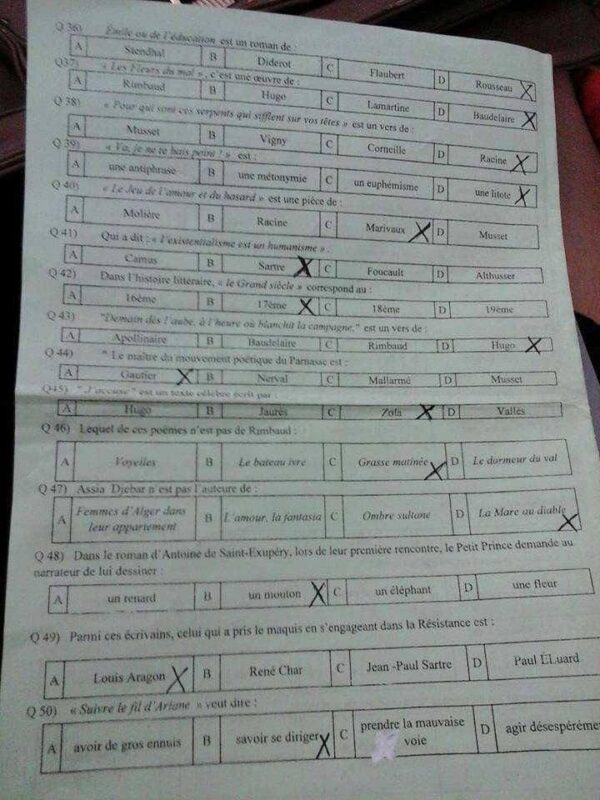 Q 36) Émile ou de l'éducation est un roman de :
A Stendhal B Diderot C Flaubert D Rousseau X
Q37) « Les Fleurs du mal », c'est une œuvre de :
A Rimbaud B Hugo C Lamartine D Baudelaire X
Q 38) « Pour qui sont ces serpents qui sifflent sur vos têtes » est un vers de :
A Musset B Vigny C Corneille D Racine X
Q 39) « Va, je ne te hais point ! » est :
A une antiphrase B une métonymie C un euphémisme D une litote X
Q 40) « Le Jeu de l'amour et du hasard » est une pièce de :
A Molière B Racine C Marivaux X D Musset
Q 41) Qui a dit : « l'existentialisme est un humanisme » .
A Camus B Sartre X C Foucault D Althusser
Q 42) Dans l'histoire littéraire, « le Grand siècle » correspond au :
A 16ème B 17ème X C 18ème D 19ème
Q 43) "Demain dès l'aube, à l'heure où blanchit la campagne," est un vers de :
A Apollinaire B Baudelaire C Rimbaud D Hugo X
Q 44) " Le maître du mouvement poétique du Parnasse est :
A Gautier X B Nerval C Mallarmé D Musset
Q45) "J'accuse" est un texte célèbre écrit par :
A Hugo B Jaurès C Zola X D Vallès
Q 46) Lequel de ces poèmes n'est pas de Rimbaud :
A Voyelles B Le bateau ivre C Grasse matinée X D Le dormeur du val
Q 47) Assia Djebar n'est pas l'auteure de :
A Femmes d'Alger dans leur appartement B L'amour, la fantasia C Ombre sultane D La Mare au diable X
Q 48) Dans le roman d'Antoine de Saint-Exupéry, lors de leur première rencontre, le Petit Prince demande au
narrateur de lui dessiner :
A un renard B un mouton X C un éléphant D une fleur
Q 49) Parmi ces écrivains, celui qui a pris le maquis en s'engageant dans la Résistance est :
A Louis Aragon X B René Char C Jean -Paul Sartre D Paul ELuard
Q 50) « Suivre le fil d'Ariane » veut dire :
A avoir de gros ennuis B savoir se diriger X C prendre la mauvaise voie D agir désespéréme